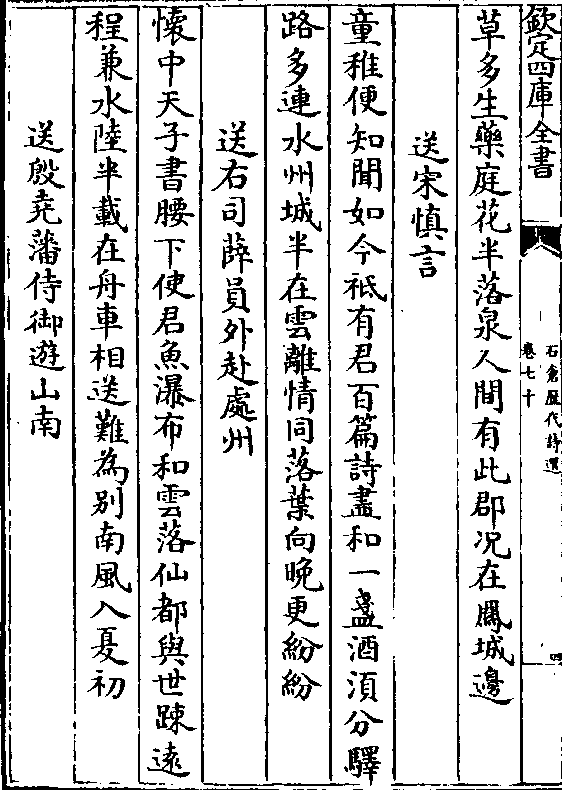 欽定四庫全書
石倉歷代詩選
卷七十
四
草多生藥庭花半落泉人間有此郡况在鳳城邊
送宋慎言
童稚便知聞如今祗有君百篇詩盡和一盞酒須分驛
路多連水州城半在雲離情同落葉向晚更紛紛
送右司薛員外赴處州
懷中天子書腰下使君魚瀑布和雲落仙都與世踈遠
程兼水陸半載在舟車相送難為别南風入夏初
送殷堯藩侍御遊山南